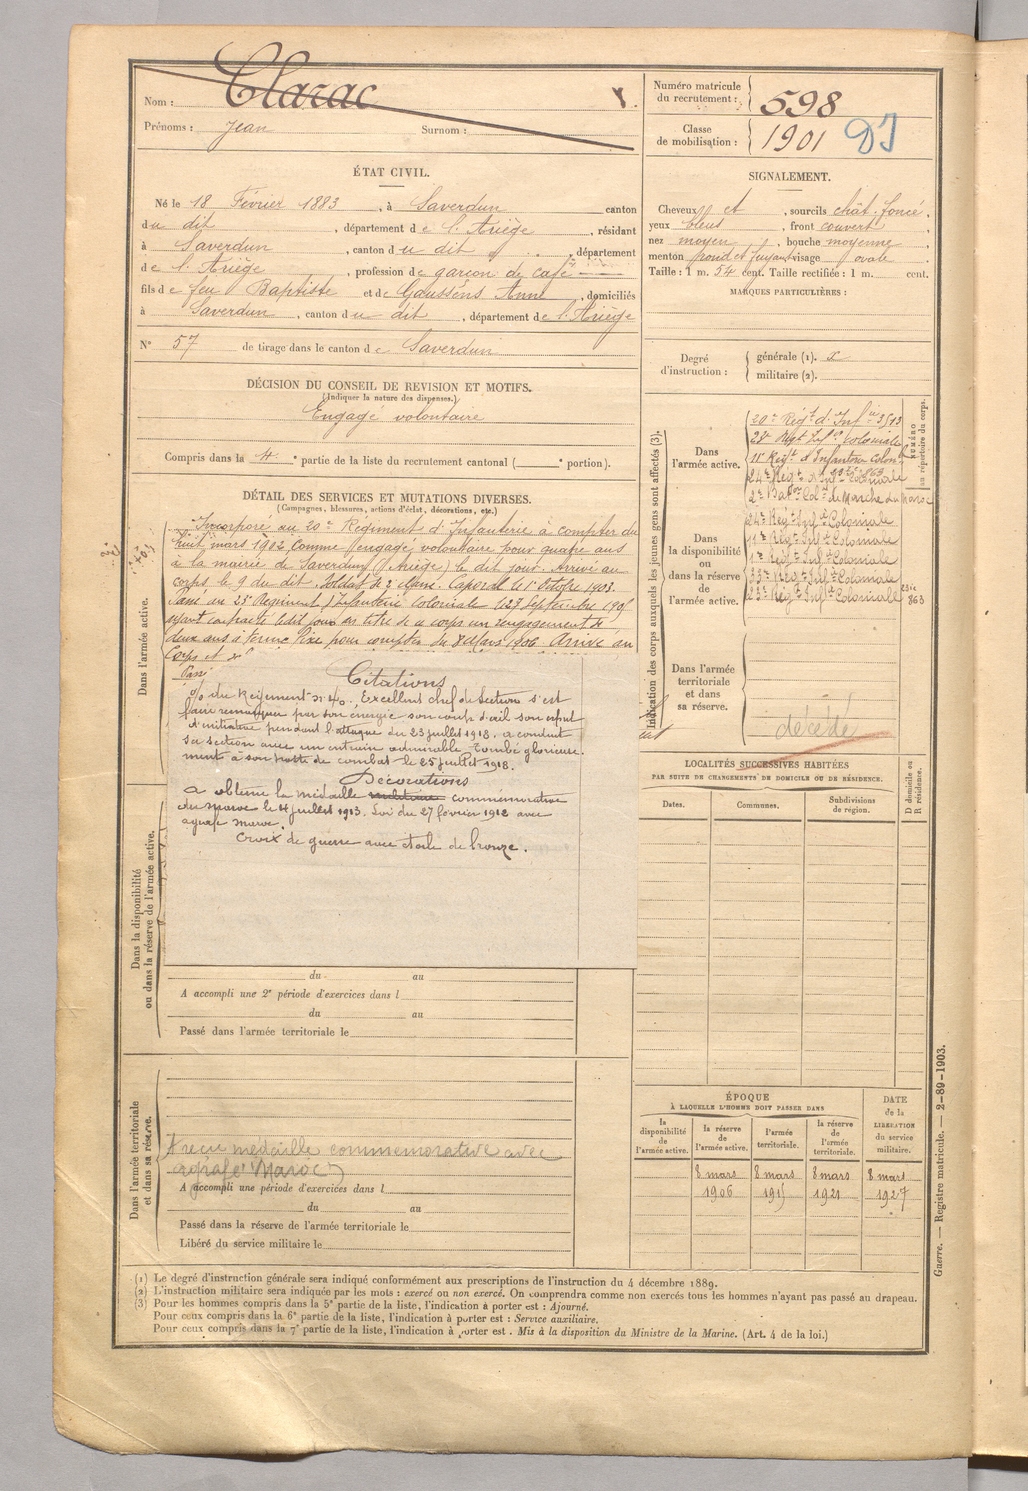 Nom : Clarac
Prénoms : Jean Surnom :
Numéro matricule du recrutement : 598
Classe de mobilisation : 1901
ÉTAT CIVIL.
Né le 18 Février 1883, à Saverdun canton
du dit, département de l'Ariège, résidant
à Saverdun, canton du dit, département
de l'Ariège, profession de garçon de café
fils de feu Baptiste et de Gaussens Anne, domiciliés
à Saverdun, canton du dit, département de l'Ariège
N° 57 de tirage dans le canton de Saverdun
SIGNALEMENT.
Cheveux et, sourcils chât. foncé,
yeux bleus, front couvert,
nez moyen, bouche moyenne,
menton rond et fuyant visage ovale
Taille : 1 m. 54 cent. Taille rectifiée : 1 m. cent.
MARQUES PARTICULIÈRES :
Degré d'instruction : générale (1).
militaire (2).
DÉCISION DU CONSEIL DE REVISION ET MOTIFS.
(Indiquer la nature des dispenses.)
Engagé volontaire
Compris dans la 4e partie de la liste du recrutement cantonal ( e portion).
DÉTAIL DES SERVICES ET MUTATIONS DIVERSES.
(Campagnes, blessures, actions d'éclat, décorations, etc.)
Dans l'armée active.
Incorporé au 20e Régiment d'Infanterie à compter du
huit mars 1902 comme engagé volontaire pour quatre ans
à la mairie de Saverdun (Ariège) le dit jour. Arrivé au
corps le 9 du dit. Soldat de 2e classe. Caporal le 1er Octobre 1903.
Passé au 23e Régiment d'Infanterie Coloniale le 23 Septembre 1905
ayant contracté ledit jour au titre de ce corps un rengagement de
deux ans à terme fixe pour compter du 8 Mars 1906. Arrivé au
Corps et
Citations
O/ du Régiment n° 40. Excellent chef de section s'est
faire remarquer par son énergie son coup d'œil son esprit
d'initiative pendant l'attaque du 23 juillet 1918. a conduit
sa section avec un entrain admirable. Tombé glorieuse-
ment à son poste de combat le 25 juillet 1918.
Décorations
a obtenu la médaille militaire commémorative
du maroc le 4 juillet 1913. Loi du 27 février 1912 avec
agrafe maroc.
Croix de guerre avec étoile de bronze.
Dans la disponibilité ou dans la réserve de l'armée active.
du au
A accompli une 2e période d'exercices dans l
du au
Passé dans l'armée territoriale le
Dans l'armée territoriale et dans sa réserve.
A reçu médaille commémorative avec
agrafe "Maroc"
A accompli une période d'exercices dans l
du au
Passé dans la réserve de l'armée territoriale le
Libéré du service militaire le
Indication des corps auxquels les jeunes gens sont affectés (3).
NUMÉRO au répertoire du corps.
Dans l'armée active.
20e Régt d'Infie
23e Régt Infie Coloniale
11e Régt d'Infanterie Colon.
24e Régt d'Infie Coloniale
2e Baton Col. de Marche du Maroc
Dans la disponibilité ou dans la réserve de l'armée active.
24e Régt Infie Coloniale
11e Régt Infie Coloniale
1er Régt Infie Coloniale
33e Régt Infie Coloniale
23e Régt Infie Coloniale
863
Dans l'armée territoriale et dans sa réserve.
décédé
LOCALITÉS SUCCESSIVES HABITÉES
PAR SUITE DE CHANGEMENTS DE DOMICILE OU DE RÉSIDENCE.
D domicile ou R résidence.
Dates. Communes. Subdivisions de région.
ÉPOQUE
À LAQUELLE L'HOMME DOIT PASSER DANS
DATE de la LIBÉRATION du service militaire.
la disponibilité de l'armée active. la réserve de l'armée active. l'armée territoriale. la réserve de l'armée territoriale.
8 mars 8 mars 8 mars 8 mars
1906 1915 1921 1927
(1) Le degré d'instruction générale sera indiqué conformément aux prescriptions de l'instruction du 4 décembre 1889.
(2) L'instruction militaire sera indiquée par les mots : exercé ou non exercé. On comprendra comme non exercés tous les hommes n'ayant pas passé au drapeau.
(3) Pour les hommes compris dans la 5e partie de la liste, l'indication à porter est : Ajourné.
Pour ceux compris dans la 6e partie de la liste, l'indication à porter est : Service auxiliaire.
Pour ceux compris dans la 7e partie de la liste, l'indication à porter est. Mis à la disposition du Ministre de la Marine. (Art. 4 de la loi.)
Guerre. — Registre matricule. — 2-89-1903.